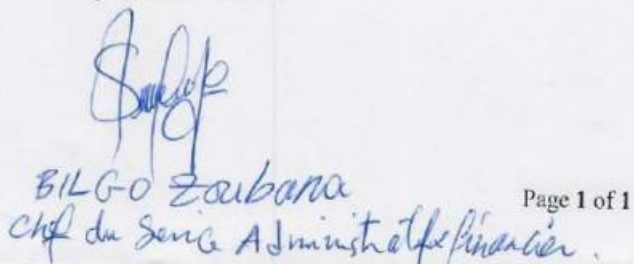 BILGO Zoubana
Page 1 of 1
Chef du Service Administratif et financier.